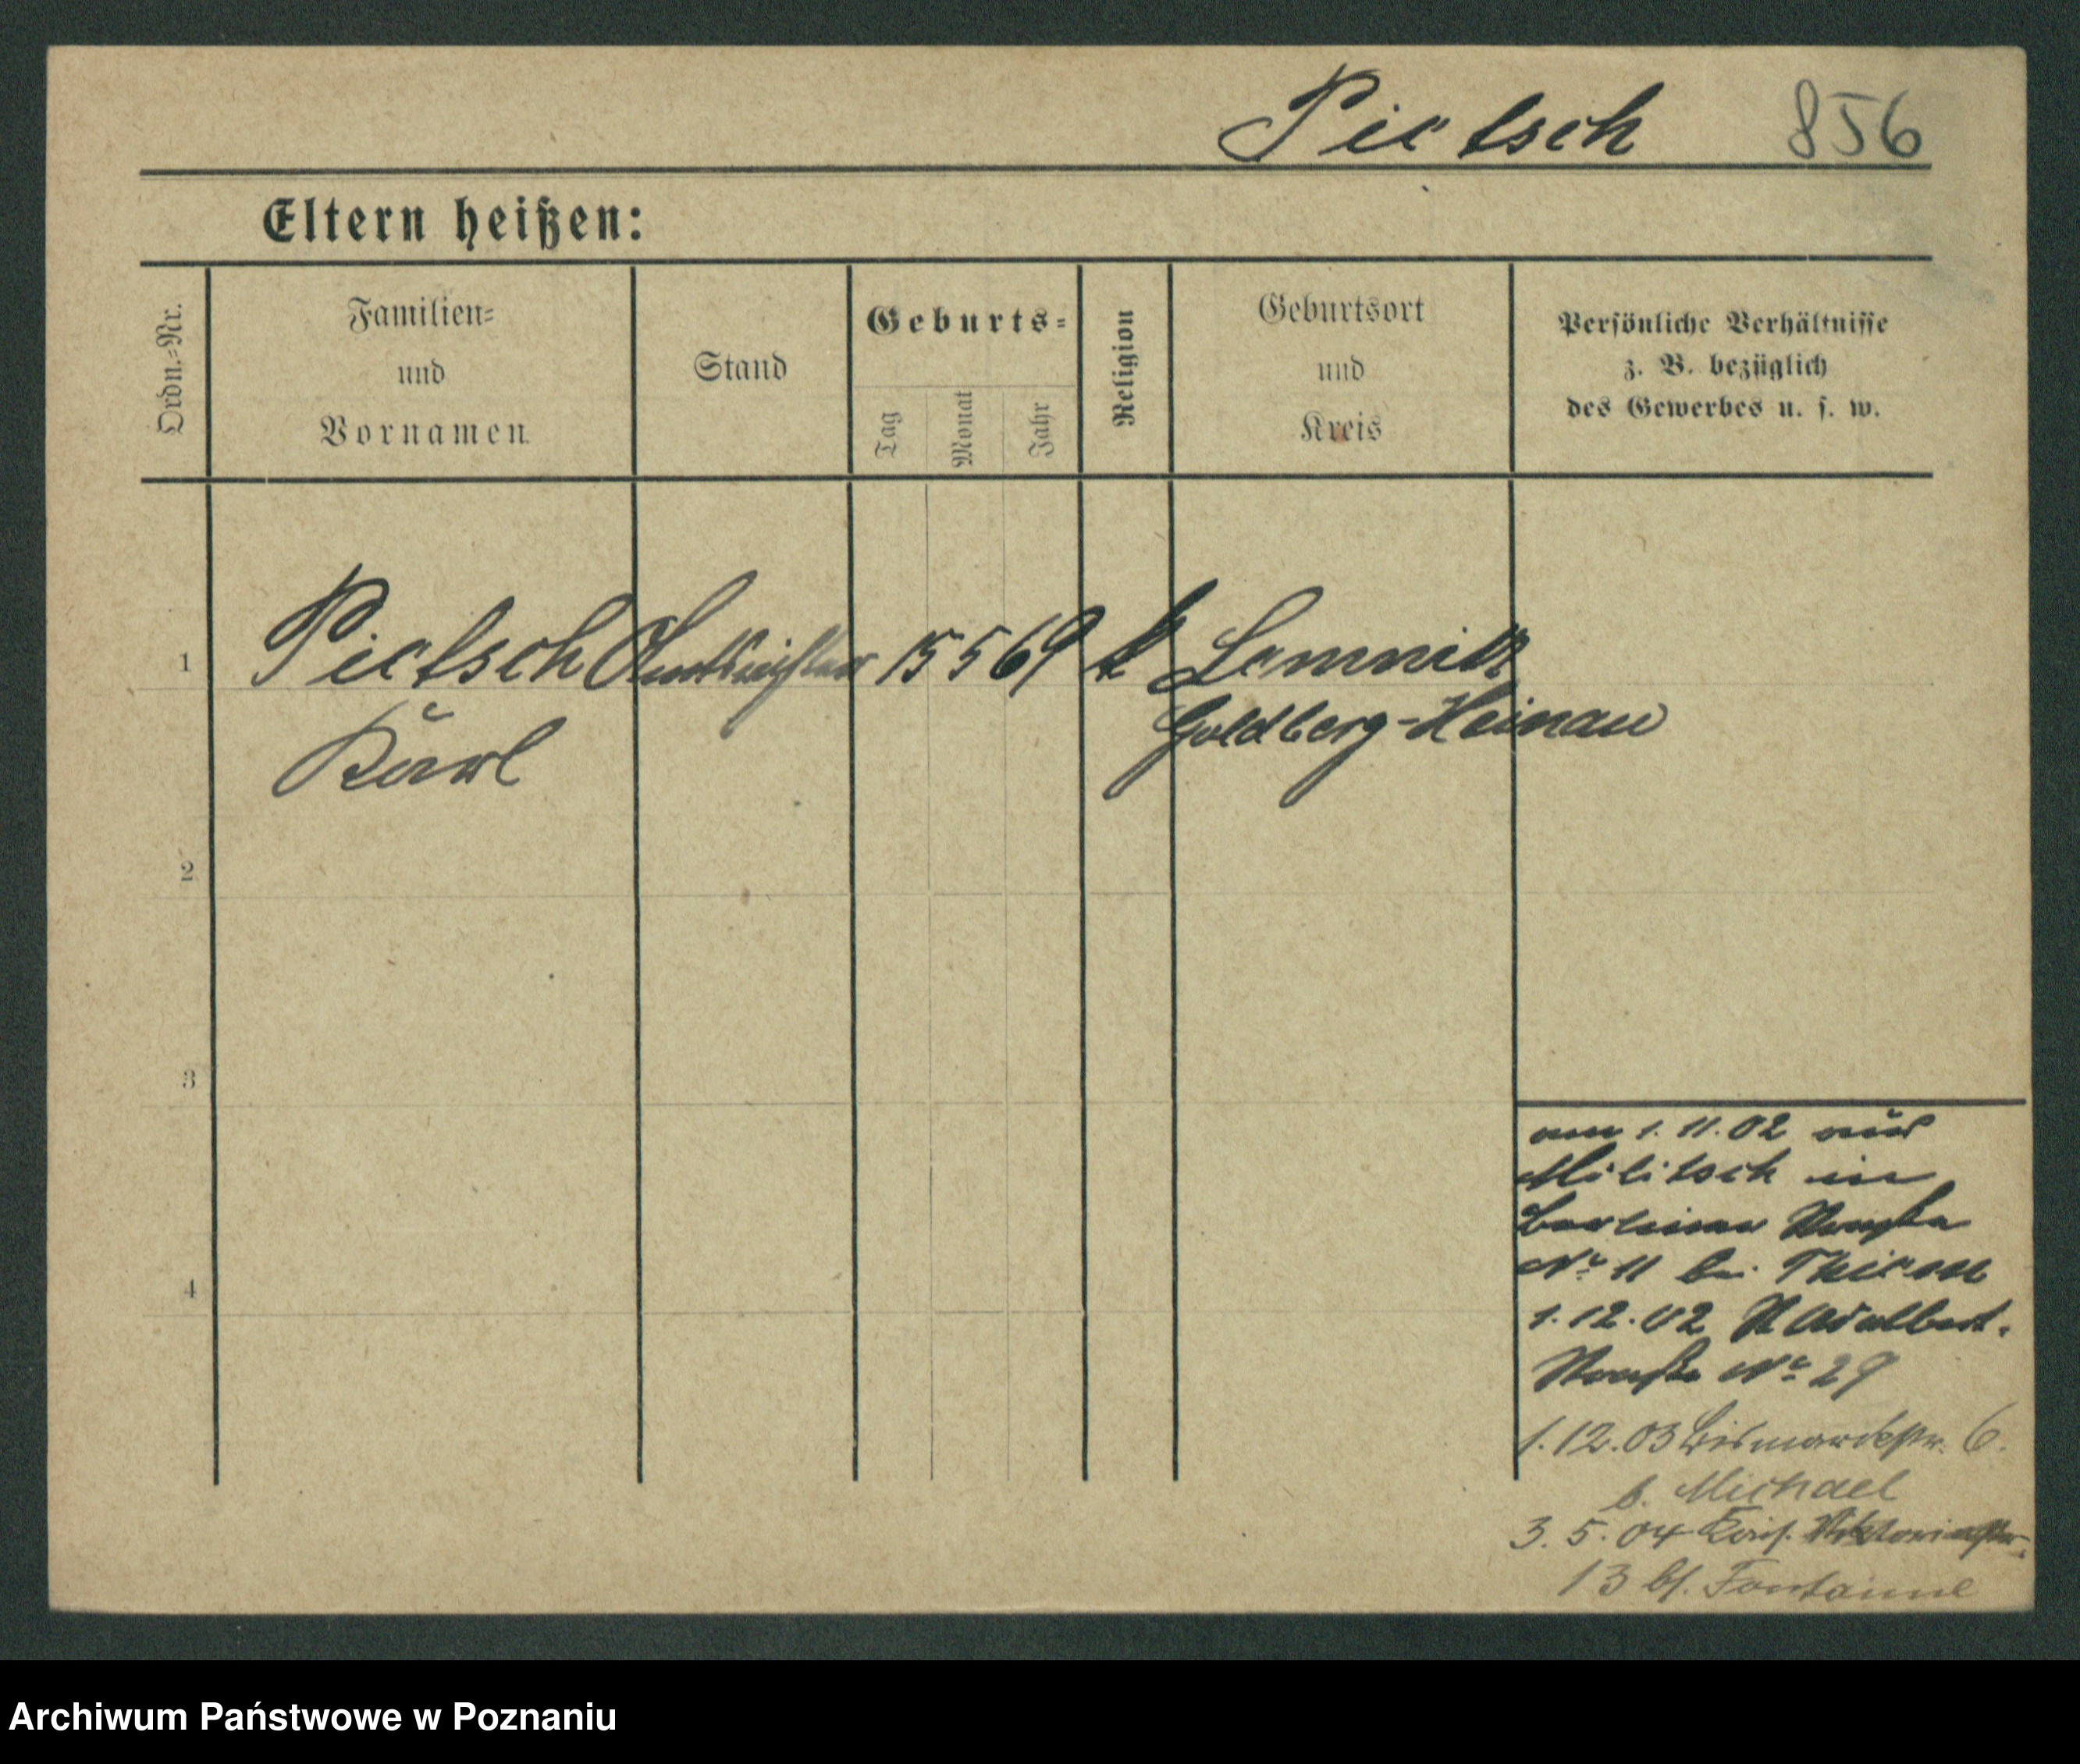 Pietsch 856
Eltern heißen:
Ordn.-Nr.
Familien-
und
Vornamen
Stand
Geburts-
Tag
Monat
Jahr
Religion
Geburtsort
und
Kreis
Persönliche Verhältnisse
z. B. bezüglich
des Gewerbes u. s. w.
1 Pietsch Amtsrichter 15 5 69 k
Goldberg-Heinau
Karl
2
3
4
am 1. 11. 02 aus
Militsch in
Berliner Straße
No 11 bei
1. 12. 02 St Adalbert-
Straße No 29
1. 12. 03 Bismarckstr. 6.
b. Michael
3. 5. 04 Viktoriastr.
13 bei Fontaine
Archiwum Państwowe w Poznaniu